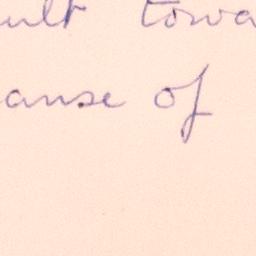 ult towa
ause of